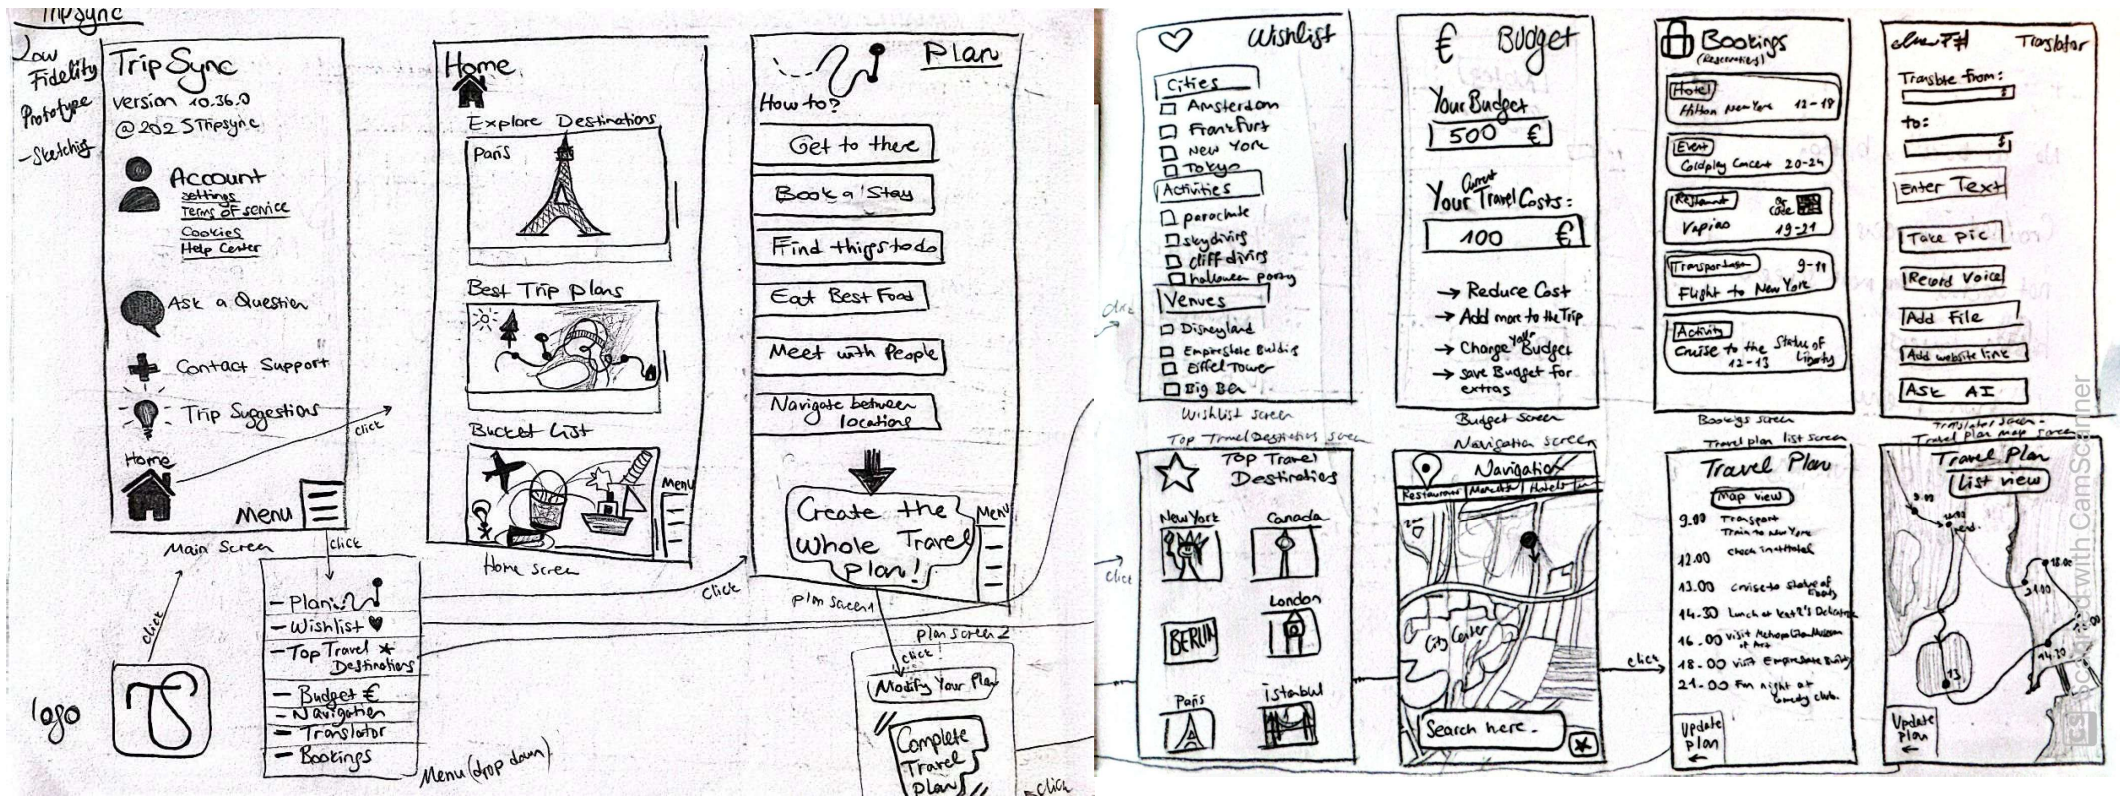 TripSync
Low
Fidelity
Prototype
-Sketching
TripSync
version 10.36.0
@2025 Tripsync
Account
settings
Terms of service
Cookies
Help Center
Ask a Question
Contact Support
Trip Suggestions
Home
click
MENU
Main Screen
click
click
logo
TS
- Plan
- Wishlist
- Top Travel
Destinations
- Budget €
- Navigation
- Translator
- Bookings
Menu (drop down)
Home
Explore Destinations
Paris
Best Trip plans
Bucket List
Menu
Home screen
click
Plan
How to?
Get to there
Book a Stay
Find things to do
Eat Best Food
Meet with People
Navigate between
locations
Create the
Whole Travel
plan!
Menu
plan screen 1
plan screen 2
click
Modify Your Plan
Complete
Travel
Plan
click
Wishlist
Cities
Amsterdam
Frankfurt
New York
Tokyo
Activities
parachute
skydiving
cliff diving
halloween party
Venues
Disneyland
Empire state Building
Eiffel Tower
Big Ben
Wishlist screen
€ Budget
Your Budget
500 €
Your Current Travel Costs:
100 €
→ Reduce Cost
→ Add more to the Trip
→ Change your Budget
→ save Budget for
extras
Budget screen
Bookings
(Reservations)
Hotel
Hilton New York 12-18
Event
Coldplay Concert 20-24
Restaurant
QR
code
Vapiano 19-21
Transportation 9-11
Flight to New York
Activity
Cruise to the Statue of
Liberty
12-13
Bookings screen
Translator
Translate from:
to:
Enter Text
Take pic
Record Voice
Add File
Add website link
Ask AI
Translator screen
click
Top Travel Destinations screen
Top Travel
Destinations
New York
Canada
London
BERLIN
Paris
istanbul
Navigation screen
Navigation
Restaurant
Hotels
City Center
Search here.
click
Travel plan list screen
Travel Plan
Map view
9.00 Transport
Train to New York
12.00 check in at Hotel
13.00 cruise to statue of
14.30 Lunch at Katz's Delicatessen
16.00 visit Metropolitan Museum
of Art
18.00 visit Empire state Building
21.00 Fun night at
comedy club.
Update
plan
←
Travel plan map screen
Travel Plan
List view
9.00
18.00
21.00
14.30
13
Update
Plan
←
CS Scanned with CamScanner